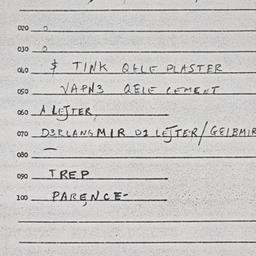 020 0
030 0
040 $ TINK QELE PLASTER
050 VAPN3 QELE CEMENT
060 A LETTER,
070 D3RLANGMIR D2 LETTER/GEIBMIR
080 –
090 TREP
100 PARENCE-